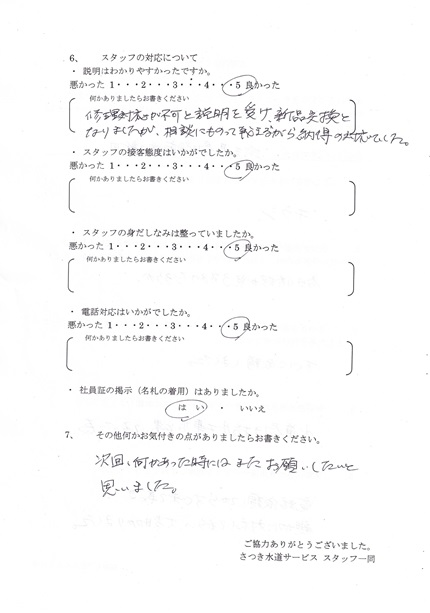 6、 スタッフの対応について
・ 説明はわかりやすかったですか。
悪かった 1・・・2・・・3・・・4・・・5 良かった
何かありましたらお書きください
修理対応が不可と説明を受け、新品交換と
なりましたが、相談にものって下さりながら納得の対応でした。
・ スタッフの接客態度はいかがでしたか。
悪かった 1・・・2・・・3・・・4・・・5 良かった
何かありましたらお書きください
・ スタッフの身だしなみは整っていましたか。
悪かった 1・・・2・・・3・・・4・・・5 良かった
何かありましたらお書きください
・ 電話対応はいかがでしたか。
悪かった 1・・・2・・・3・・・4・・・5 良かった
何かありましたらお書きください
・ 社員証の掲示（名札の着用）はありましたか。
はい ・ いいえ
7、 その他何かお気付きの点がありましたらお書きください。
次回、何かあった時にはまたお願いしたいと
思いました。
ご協力ありがとうございました。
さつき水道サービス スタッフ一同